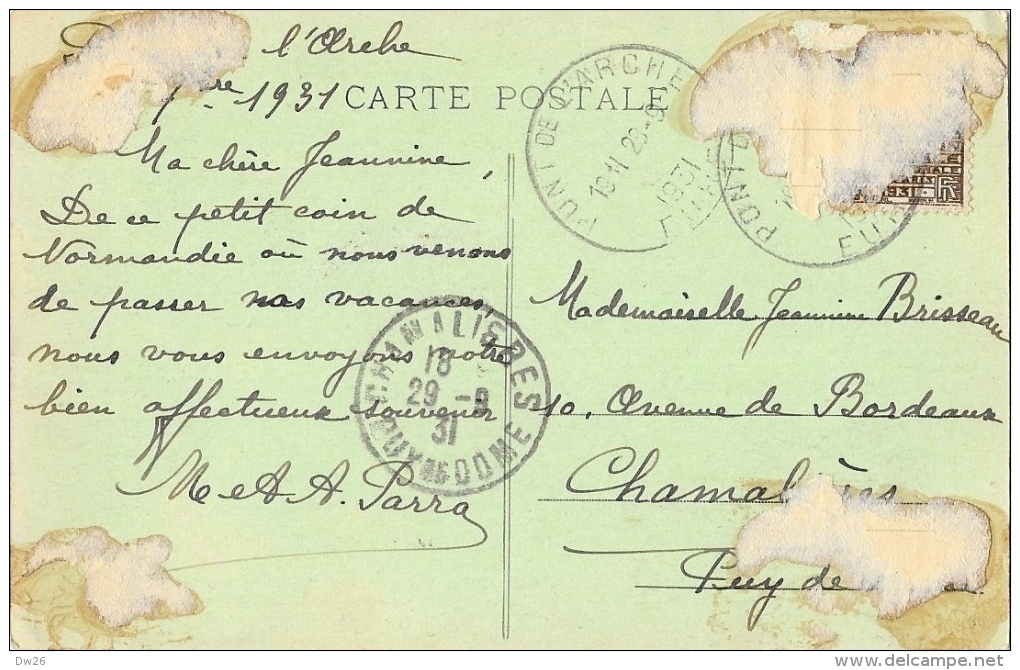 l'Arche
1931
CARTE POSTALE
Ma chère Jeannine,
De ce petit coin de
Normandie où nous venons
de passer nos vacances,
nous vous envoyons notre
bien affectueux souvenir
M et A. Parra
PONT DE L'ARCHE
1931
EURE
PONT D
EURE
CHAMALIERES
18
29 -9
31
PUY DE DOME
Mademoiselle Jeannine Brisseau
10, Avenue de Bordeaux
Chamalières
Puy de
Dw26